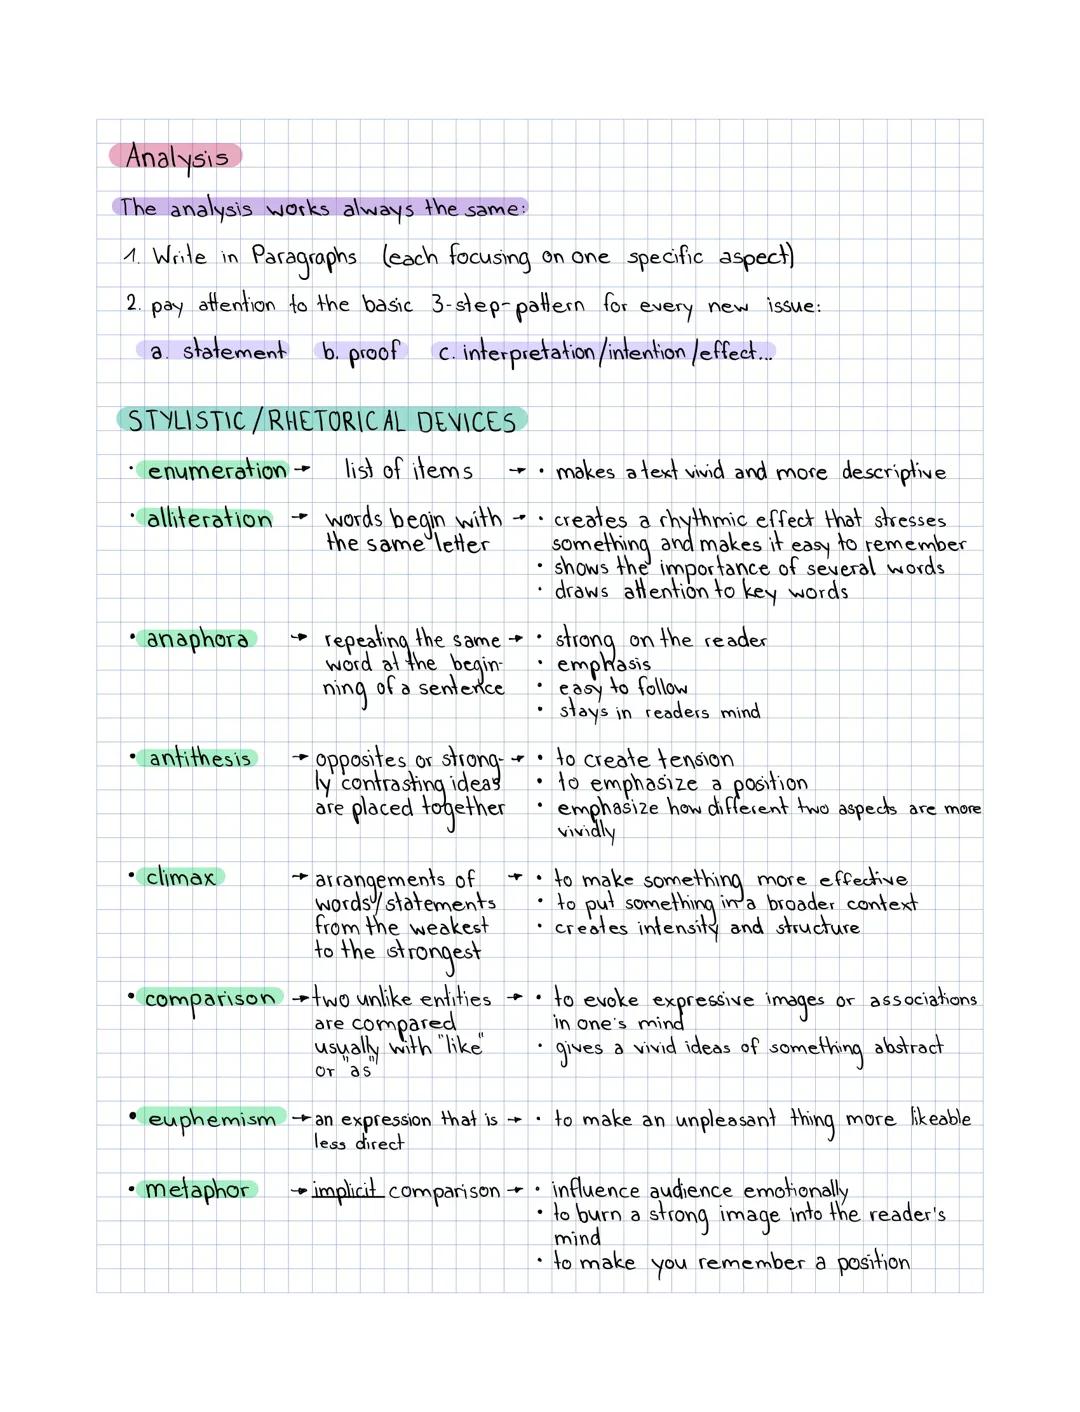 Analysis
The analysis works always the same:
1. Write in Paragraphs (each focusing on one specific aspect)
2. pay attention to the basic 3-step-pattern for every new issue:
a. statement b. proof c. interpretation/intention/effect...
STYLISTIC/RHETORICAL DEVICES
• enumeration → list of items → • makes a text vivid and more descriptive
• alliteration → words begin with → • creates a rhythmic effect that stresses
the same letter something and makes it easy to remember
• shows the importance of several words
• draws attention to key words
• anaphora → repeating the same → • strong on the reader
word at the begin- • emphasis
ning of a sentence • easy to follow
• stays in readers mind
• antithesis → opposites or strong- → • to create tension
ly contrasting ideas • to emphasize a position
are placed together • emphasize how different two aspects are more
vividly
• climax → arrangements of → • to make something more effective
words/statements • to put something in a broader context
from the weakest • creates intensity and structure
to the strongest
• comparison → two unlike entities → • to evoke expressive images or associations
are compared in one's mind
usually with "like" • gives a vivid ideas of something abstract
or "as"
• euphemism → an expression that is → • to make an unpleasant thing more likeable
less direct
• metaphor → implicit comparison → • influence audience emotionally
• to burn a strong image into the reader's
mind
• to make you remember a position